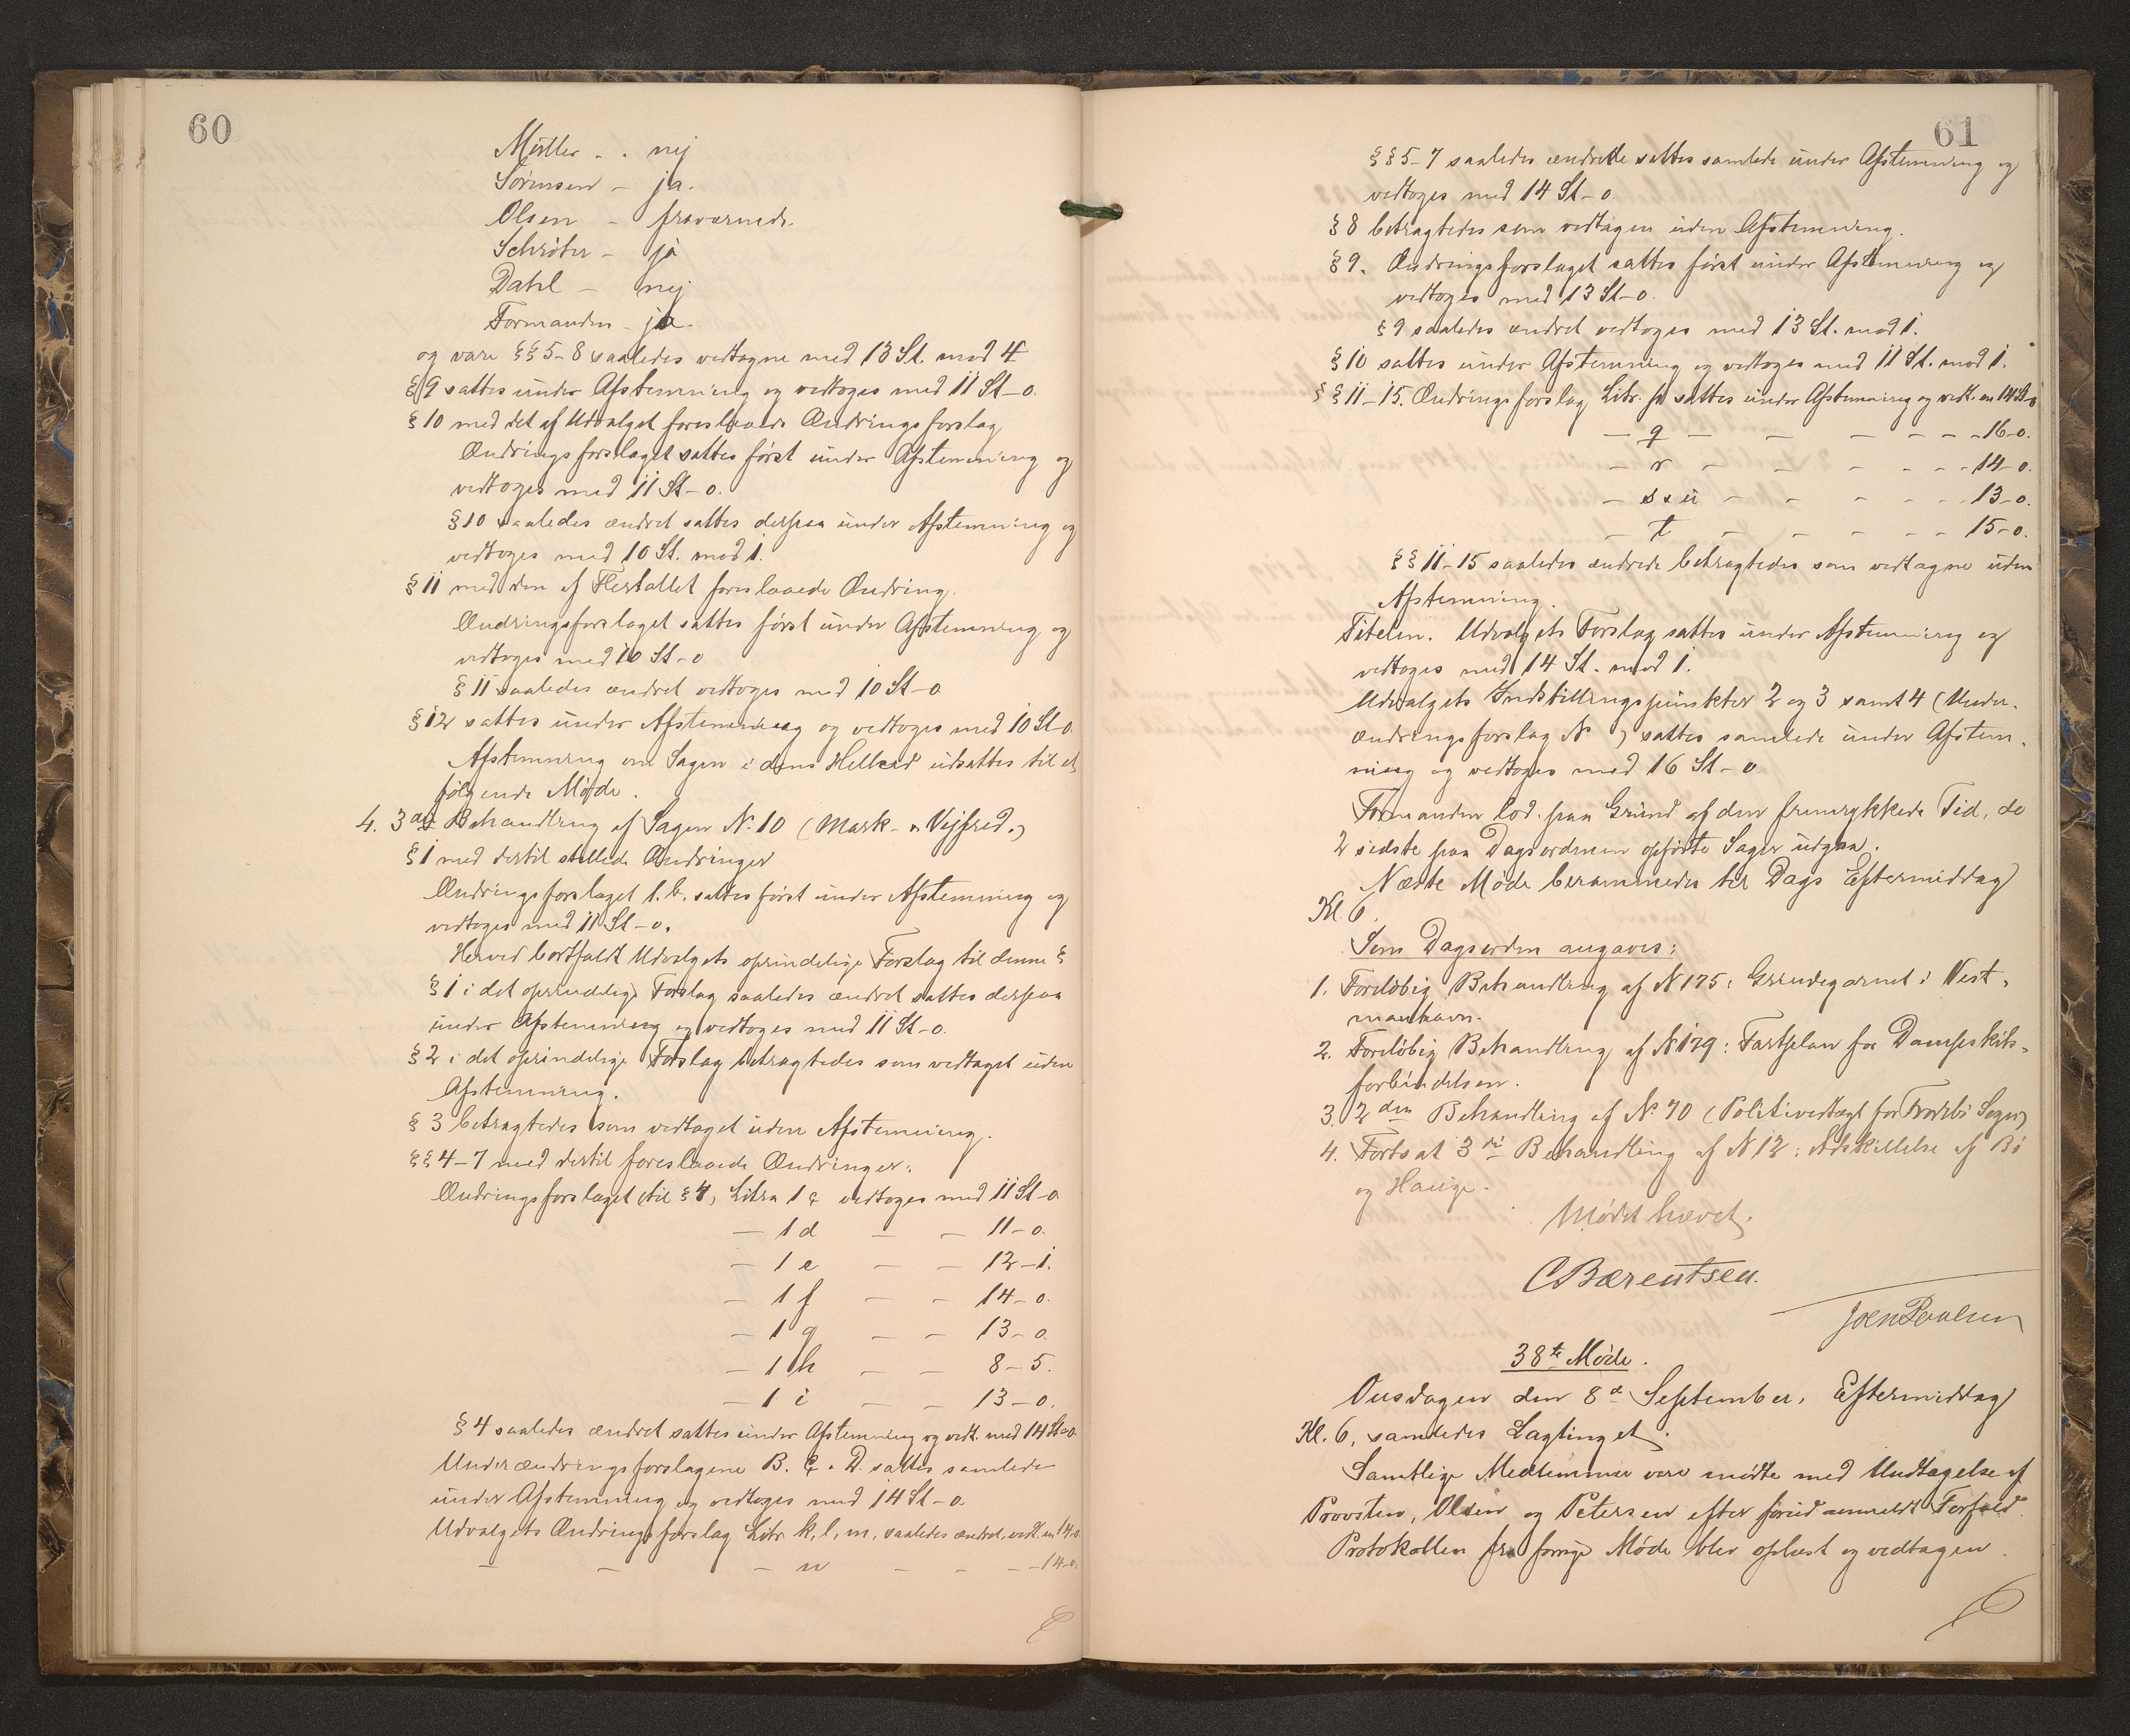 60
Müller - - nej
Sørensen - ja.
Olsen - fraværende.
Schrøter - ja
Dahl - nej
Formanden - ja.
og vare §§ 5-8 saaledes vedtagne med 13 St. mod 4
§ 9 sattes under Afstemning og vedtoges med 11 St-0.
§ 10 med det af Udvalget foreslaaede Ændringsforslag
Ændringsforslaget sattes først under Afstemning og
vedtoges med 11 St-0.
§ 10 saaledes ændret sattes derpaa under Afstemning og
vedtoges med 10 St. mod 1.
§ 11 med den af Flertallet foreslaaede Ændring.
Ændringsforslaget sattes først under Afstemning og
vedtoges med 10 St-0
§ 11 saaledes ændret vedtoges med 10 St-0
§ 12 sattes under Afstemning og vedtoges med 10 St-0.
Afstemning om Sagen i dens Helhed udsattes til et
følgende Møde.
4. 3die Behandling af Sagen N. 10 (Mark- Vejfred.)
§ 1 med dertil stillede Ændringer
Ændringsforslaget 1. b. sattes først under Afstemning og
vedtoges med 11 St-0.
Herved bortfaldt Udvalgets oprindelige Forslag til denne §
§ 1 i det oprindelige Forslag saaledes ændret sattes derpaa
under Afstemning og vedtoges med 11 St-0.
§ 2 i det oprindelige Forslag betragtedes som vedtaget uden
Afstemning.
§ 3 betragtedes som vedtaget uden Afstemning.
§§ 4-7 med dertil foreslaaede Ændringer.
Ændringsforslaget til § 4, Litra 1 c vedtoges med 11 St-0
- 1 d - - 11-0.
- 1 e - - 12-1.
- 1 f - - 14-0.
- 1 g - - 13-0.
- 1 h - - 8-5.
- 1 i - - 13-0.
§ 4 saaledes ændret sattes under Afstemning og vedt. med 14 St-0.
Underændringsforslagene B. C. D. sattes samlede
under Afstemning og vedtoges med 14 St-0.
Udvalgets Ændringsforslag Litr. k, l, m, saaledes ændret, vedt. m 14-0.
- - - n - - - 14-0.
61
§§ 5-7 saaledes ændrede sattes samlede under Afstemning og
vedtoges med 14 St-0.
§ 8 betragtedes som vedtagen uden Afstemning.
§ 9. Ændringsforslaget sattes først under Afstemning og
vedtoges med 13 St-0.
§ 9 saaledes ændret vedtoges med 13 St. mod 1.
§ 10 sattes under Afstemning og vedtoges med 11 St. mod 1.
§§ 11-15. Ændringsforslag Litr. p sattes under Afstemning og vedt. m 14 St-0
- q - - - - - 16-0.
- r - - - - - 14-0.
- s & u - - - - - 13-0.
- t - - - - - 15-0.
§§ 11-15 saaledes ændrede betragtedes som vedtagne uden
Afstemning.
Titelen. Udvalgets Forslag sattes under Afstemning og
vedtoges med 14 St. mod 1.
Udvalgets Indstillingspunkter 2 og 3 samt 4 (Under-
ændringsforslag N ) sattes samlede under Afstem-
ning og vedtoges med 16 St-0
Formanden lod paa Grund af den fremrykkede Tid, de
2 sidste paa Dagsordenen opførte Sager udgaa.
Næste Møde berammedes til Dags Eftermiddag
Kl. 6.
Som Dagsorden angaves:
1. Foreløbig Behandling af N 175: Grindegarnet i Vest-
manhavn.
2. Foreløbig Behandling af N 179: Fartplan for Dampskibs-
forbindelsen.
3. 2den Behandling af N. 70 (Politivedtægt for Frodebø Sogn)
4. Fortsat 3die Behandling af N 12: Adskillelse af Bø
og Hauge.
Mødet hævet.
C Bærentsen.
Joen Poulsen
38te Møde.
Onsdagen den 8d September, Eftermiddag
Kl. 6, samledes Lagtinget.
Samtlige Medlemmer vare mødte med Undtagelse af
Provsten, Olsen og Petersen efter forud anmeldt Forfald.
Protokollen fra forrige Møde blev oplæst og vedtagen.